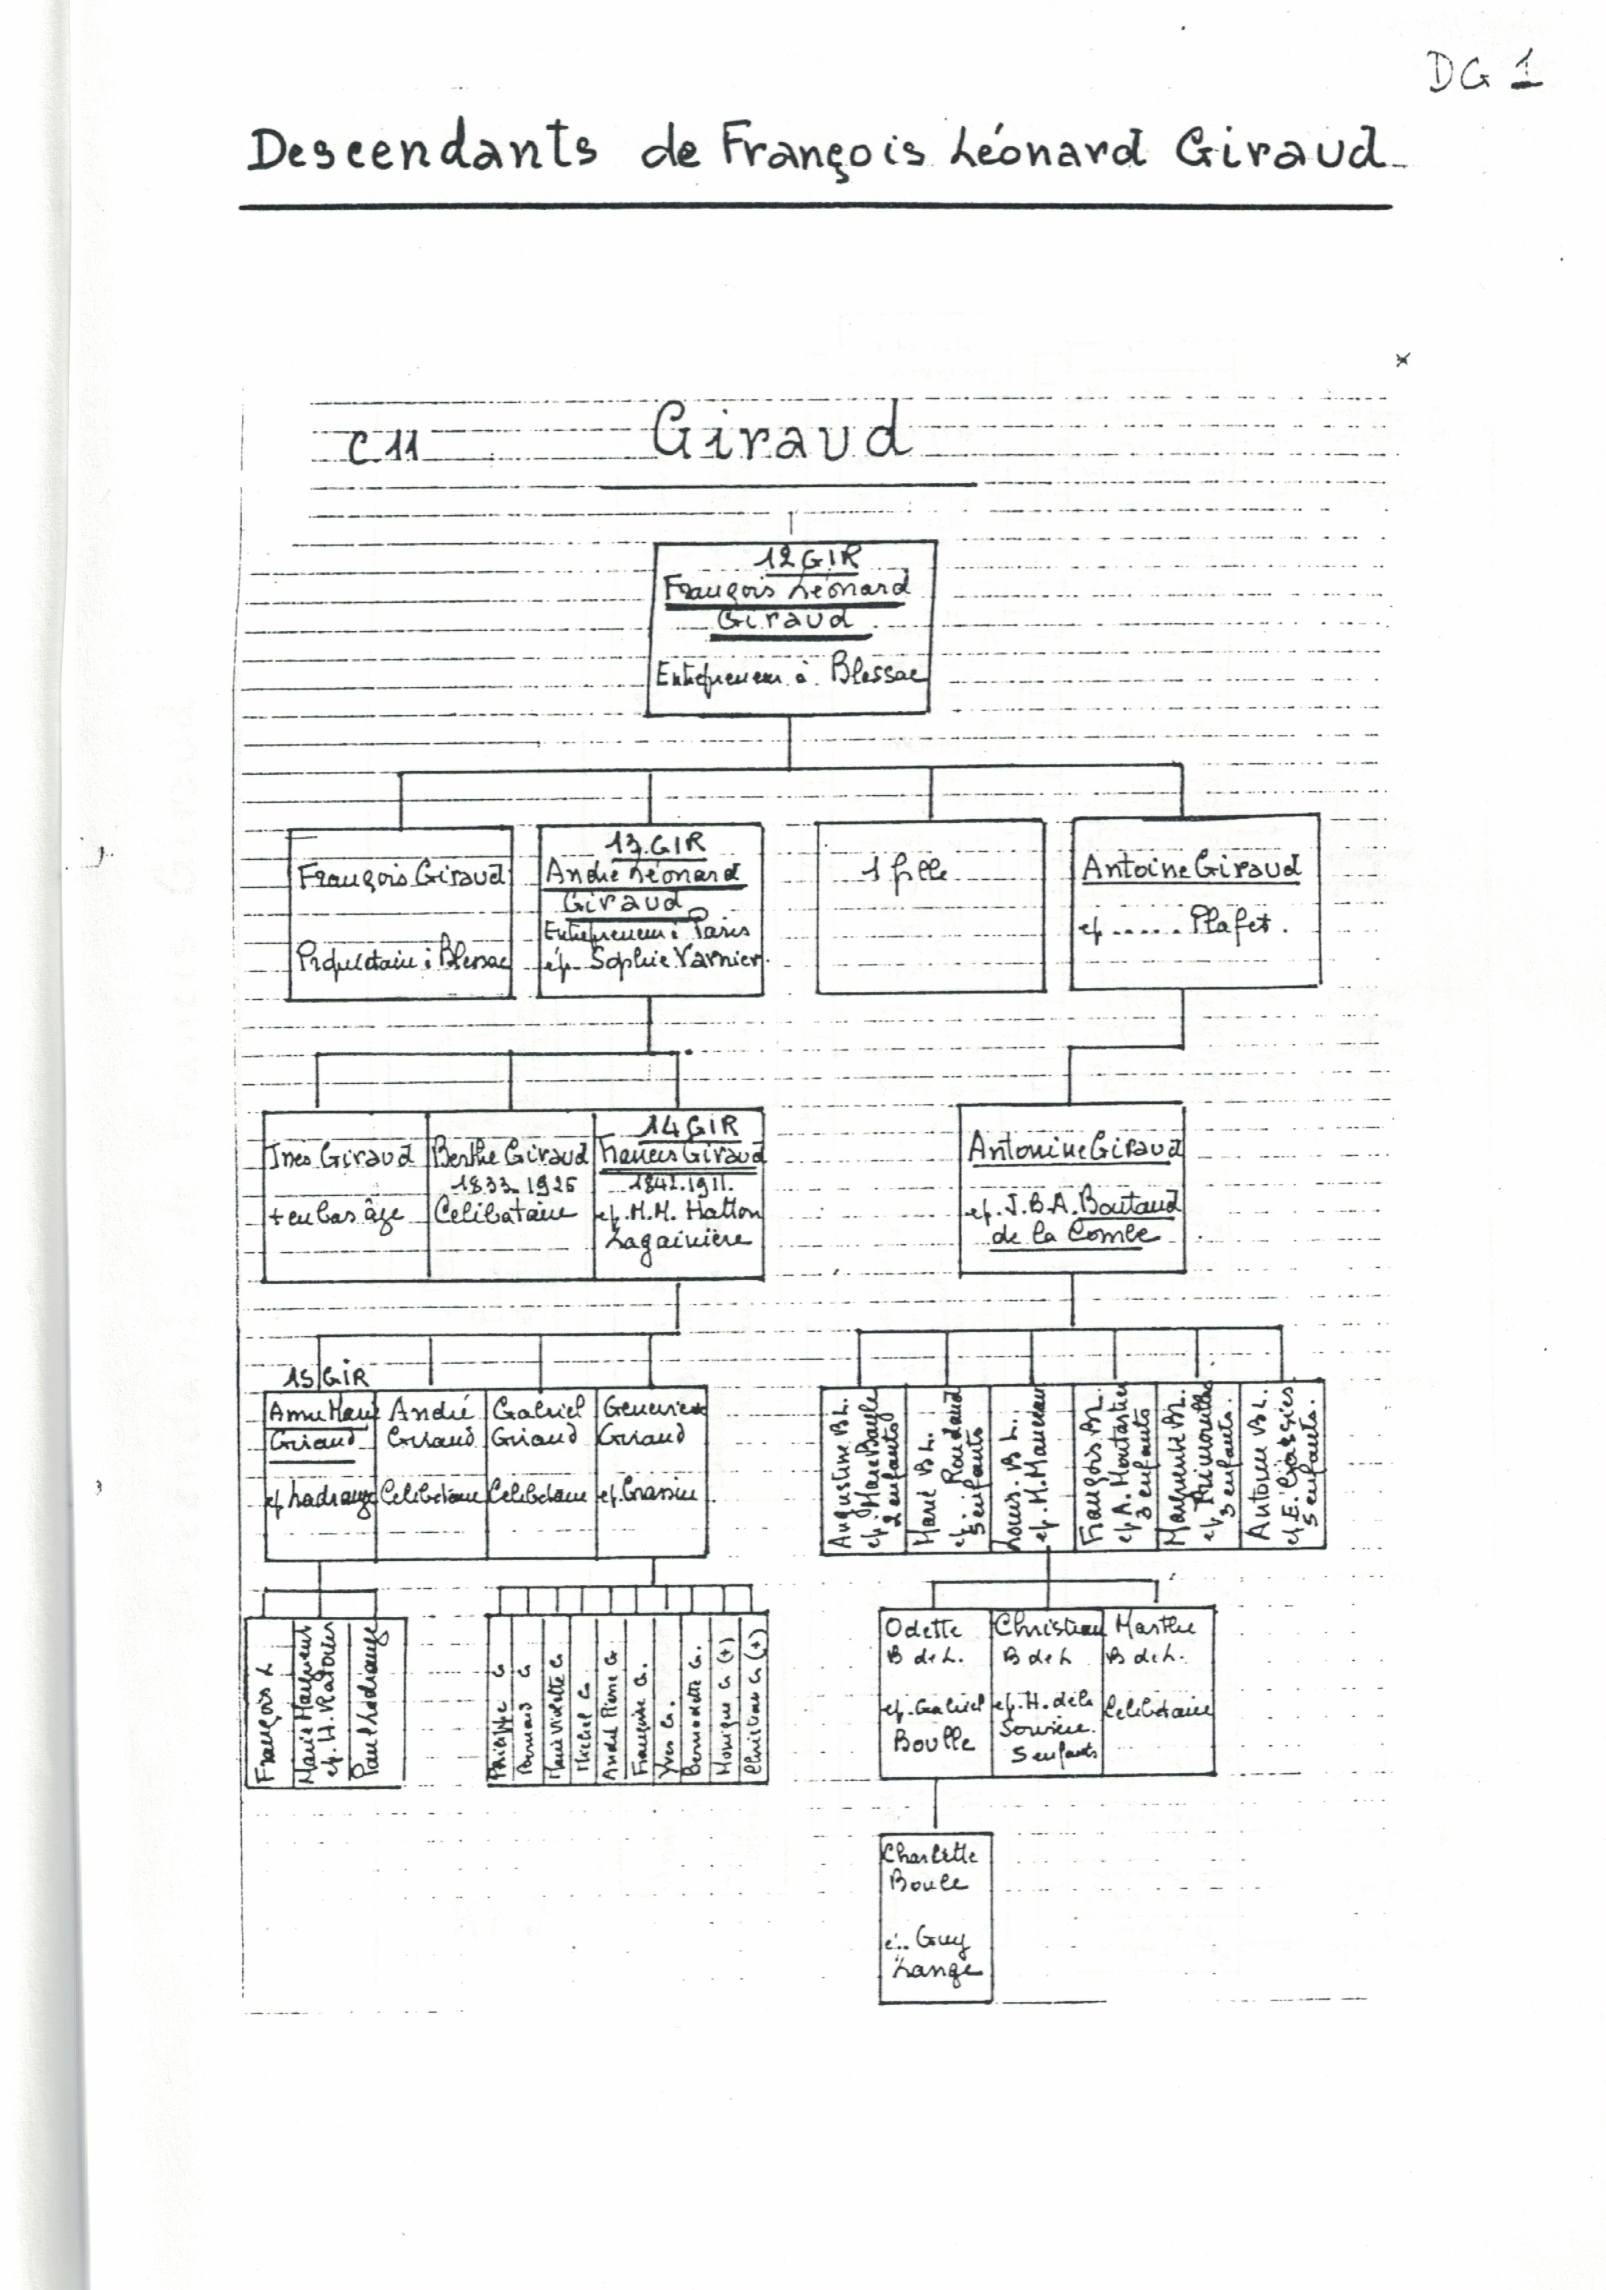 DG 1
Descendants de François Léonard Giraud
C 11
Giraud
12 GIR
François Léonard
Giraud
Entrepreneur à Blessac
François Giraud
Propriétaire à Blessac
13.GIR
André Léonard
Giraud
Entrepreneur à Paris
ép. Sophie Varnier.
1 fille
Antoine Giraud
ep ...... Plafet.
Ines Giraud
+ en bas âge
Berthe Giraud
1833_1926
Celibataire
14 GIR
Francis Giraud
1841.1911.
ep. M.M. Hatton
Lagainière
Antonine Giraud
ep. J.B.A. Boutaud
de la Combe
15 GIR
Anne Marie
Giraud
ep Ladrange
André
Giraud
Celibataire
Gabriel
Giraud
Celibataire
Genevieve
Giraud
ep. Grassin
Augustine B L.
ep. Marie Bayle
2 enfants
Marie B L.
ep. Roudaud
5 enfants
Louis. B L.
ep. M. Mandar
François BL.
ep A. Moutartier
3 enfants
Marguerite BL.
ep
3 enfants.
Antoine BL.
ep E.
5 enfants.
François L
Marie Marguerite
ep. H. Ratouis
Paul Ladrange
Philippe G
Bernard G
Marie Violette G
Michel G
André Pierre G
Françoise G.
Yves G.
Bernadette G.
Monique G (+)
Christian G (+)
Odette
B de L.
ep. Gabriel
Boulle
Christian
B de L
ep. H. de la
Sourière.
5 enfants
Marthe
B de L.
Celibataire
Charlette
Boulle
é.. Guy
Lange